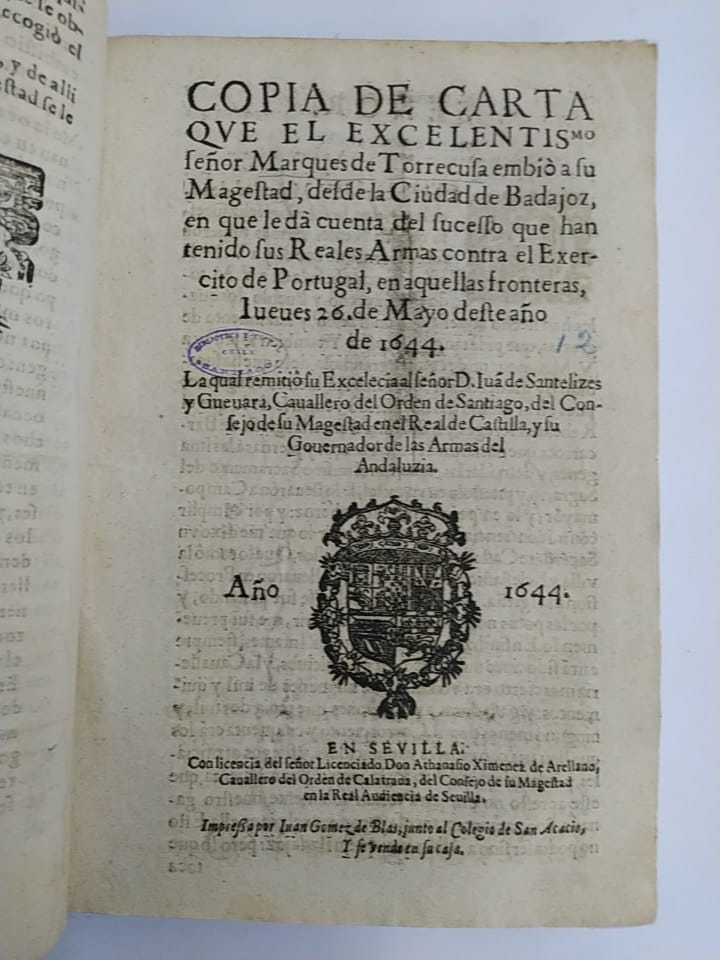 se ob-
ecogiò el
, y de alli
stad se le
COPIA DE CARTA
QVE EL EXCELENTIS^MO
señor Marques de Torrecusa embiò a su
Magestad, desde la Ciudad de Badajoz,
en que le dà cuenta del sucesso que han
tenido sus Reales Armas contra el Exer-
cito de Portugal, en aquellas fronteras,
Iueues 26. de Mayo deste año
de 1644.
12
La qual remitiò su Excelẽcia al señor D. Iuã de Santelizes
y Gueuara, Cauallero del Orden de Santiago, del Con-
sejo de su Magestad en el Real de Castilla, y su
Gouernador de las Armas del
Andaluzia.
Año 1644.
EN SEVILLA:
Con licencia del señor Licenciado Don Athanasio Ximenez de Arellano,
Cauallero del Orden de Calatraua, del Consejo de su Magestad
en la Real Audiencia de Seuilla.
Impressa por Iuan Gomez de Blas, junto al Colegio de San Acacio,
Y se vende en su casa.